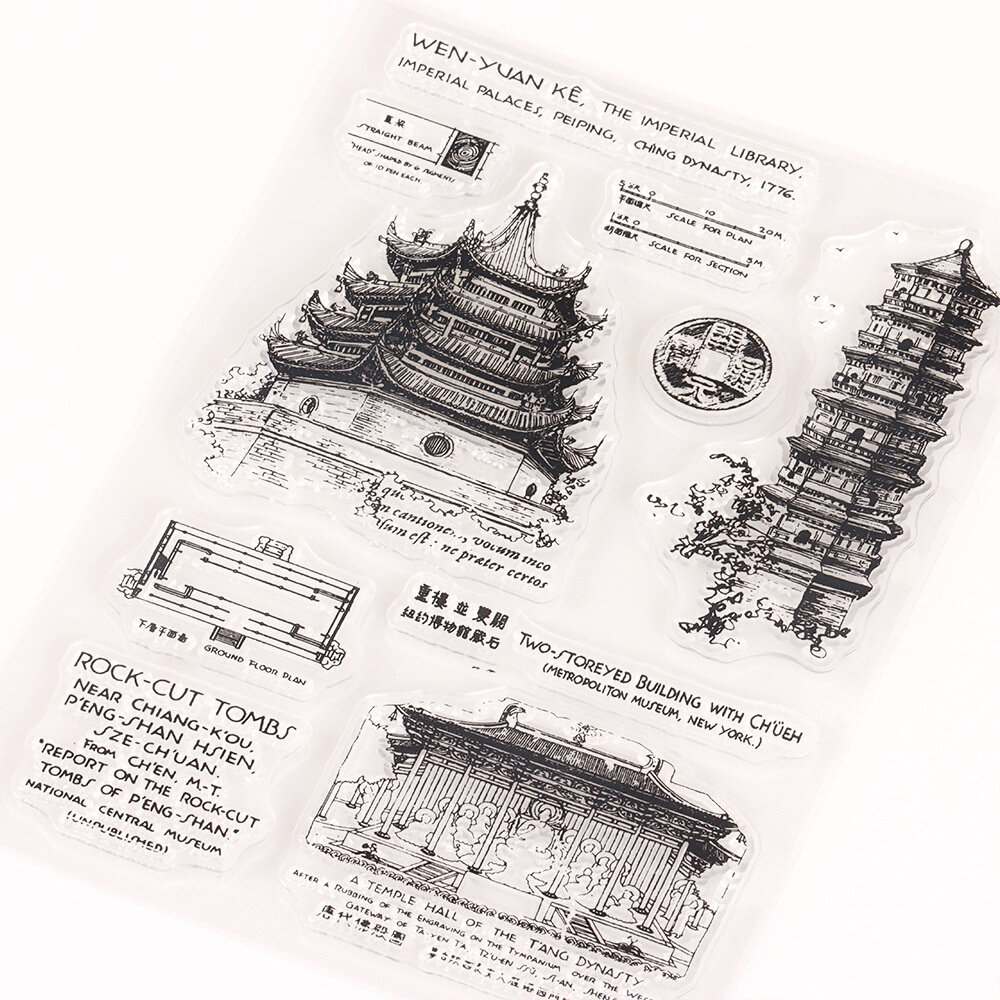 WEN-YUAN KÊ, THE IMPERIAL LIBRARY.
IMPERIAL PALACES, PEIPING, CH'ING DYNASTY, 1776.
STRAIGHT BEAM
"HEAD" SHAPED BY 6 SEGMENTS
OF 10 FEN EACH.
0 10 20 M.
平面 SCALE FOR PLAN
0 5 M
SCALE FOR SECTION
qui
n cantione... volum inco
sum est: ne præter certos
下層平面
GROUND FLOOR PLAN
重樓並雙闕
紐約博物館藏石
TWO-STOREYED BUILDING WITH CH'ÜEH
(METROPOLITON MUSEUM, NEW YORK.)
ROCK-CUT TOMBS
NEAR CHIANG-K'OU,
P'ENG-SHAN HSIEN,
SZE-CH'UAN.
FROM CH'EN, M-T.
"REPORT ON THE ROCK-CUT
TOMBS OF P'ENG-SHAN."
NATIONAL CENTRAL MUSEUM
(UNPUBLISHED)
A TEMPLE HALL OF THE T'ANG DYNASTY
AFTER A RUBBING OF THE ENGRAVING ON THE TYMPANIUM OVER THE WES
GATEWAY OF TA-YEN TA, TZ'U-EN SSŬ, SI-AN, SHENS
唐代佛殿圖